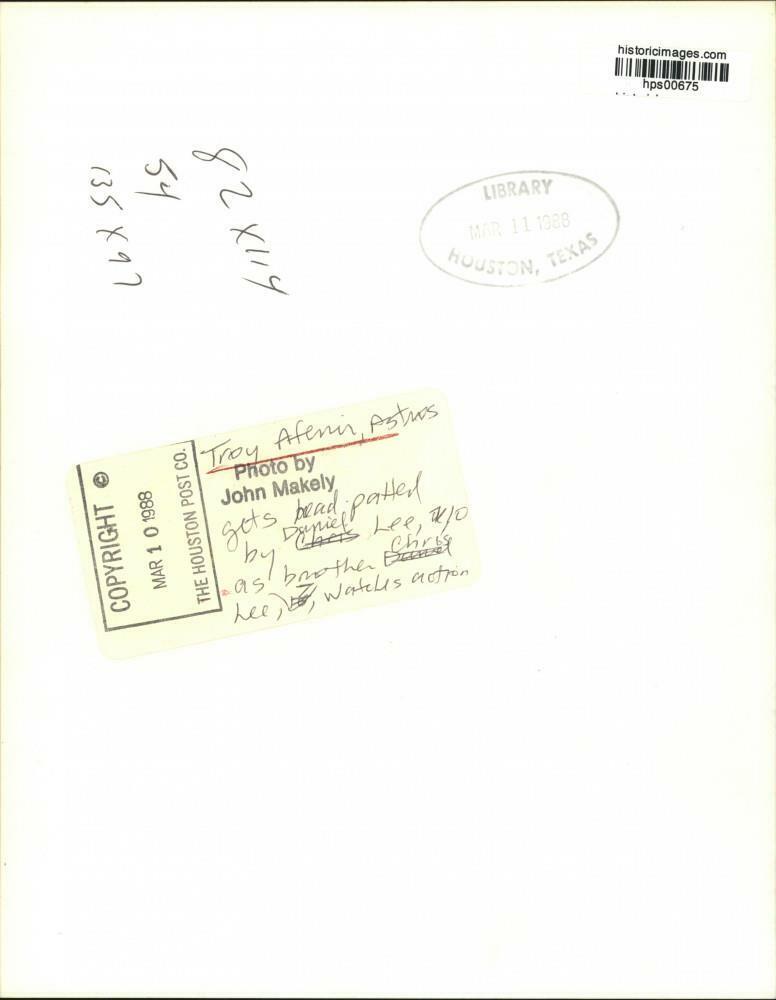 historicimages.com
hps00675
82 x 114
54
135 x 97
LIBRARY
MAR 11 1988
HOUSTON, TEXAS
COPYRIGHT ©
MAR 10 1988
THE HOUSTON POST CO.
Troy Afenir, Astros
Photo by
John Makely
gets head patted
Daniel
by Chris Lee,
Chris
as brother Daniel
Lee, 7, watches action